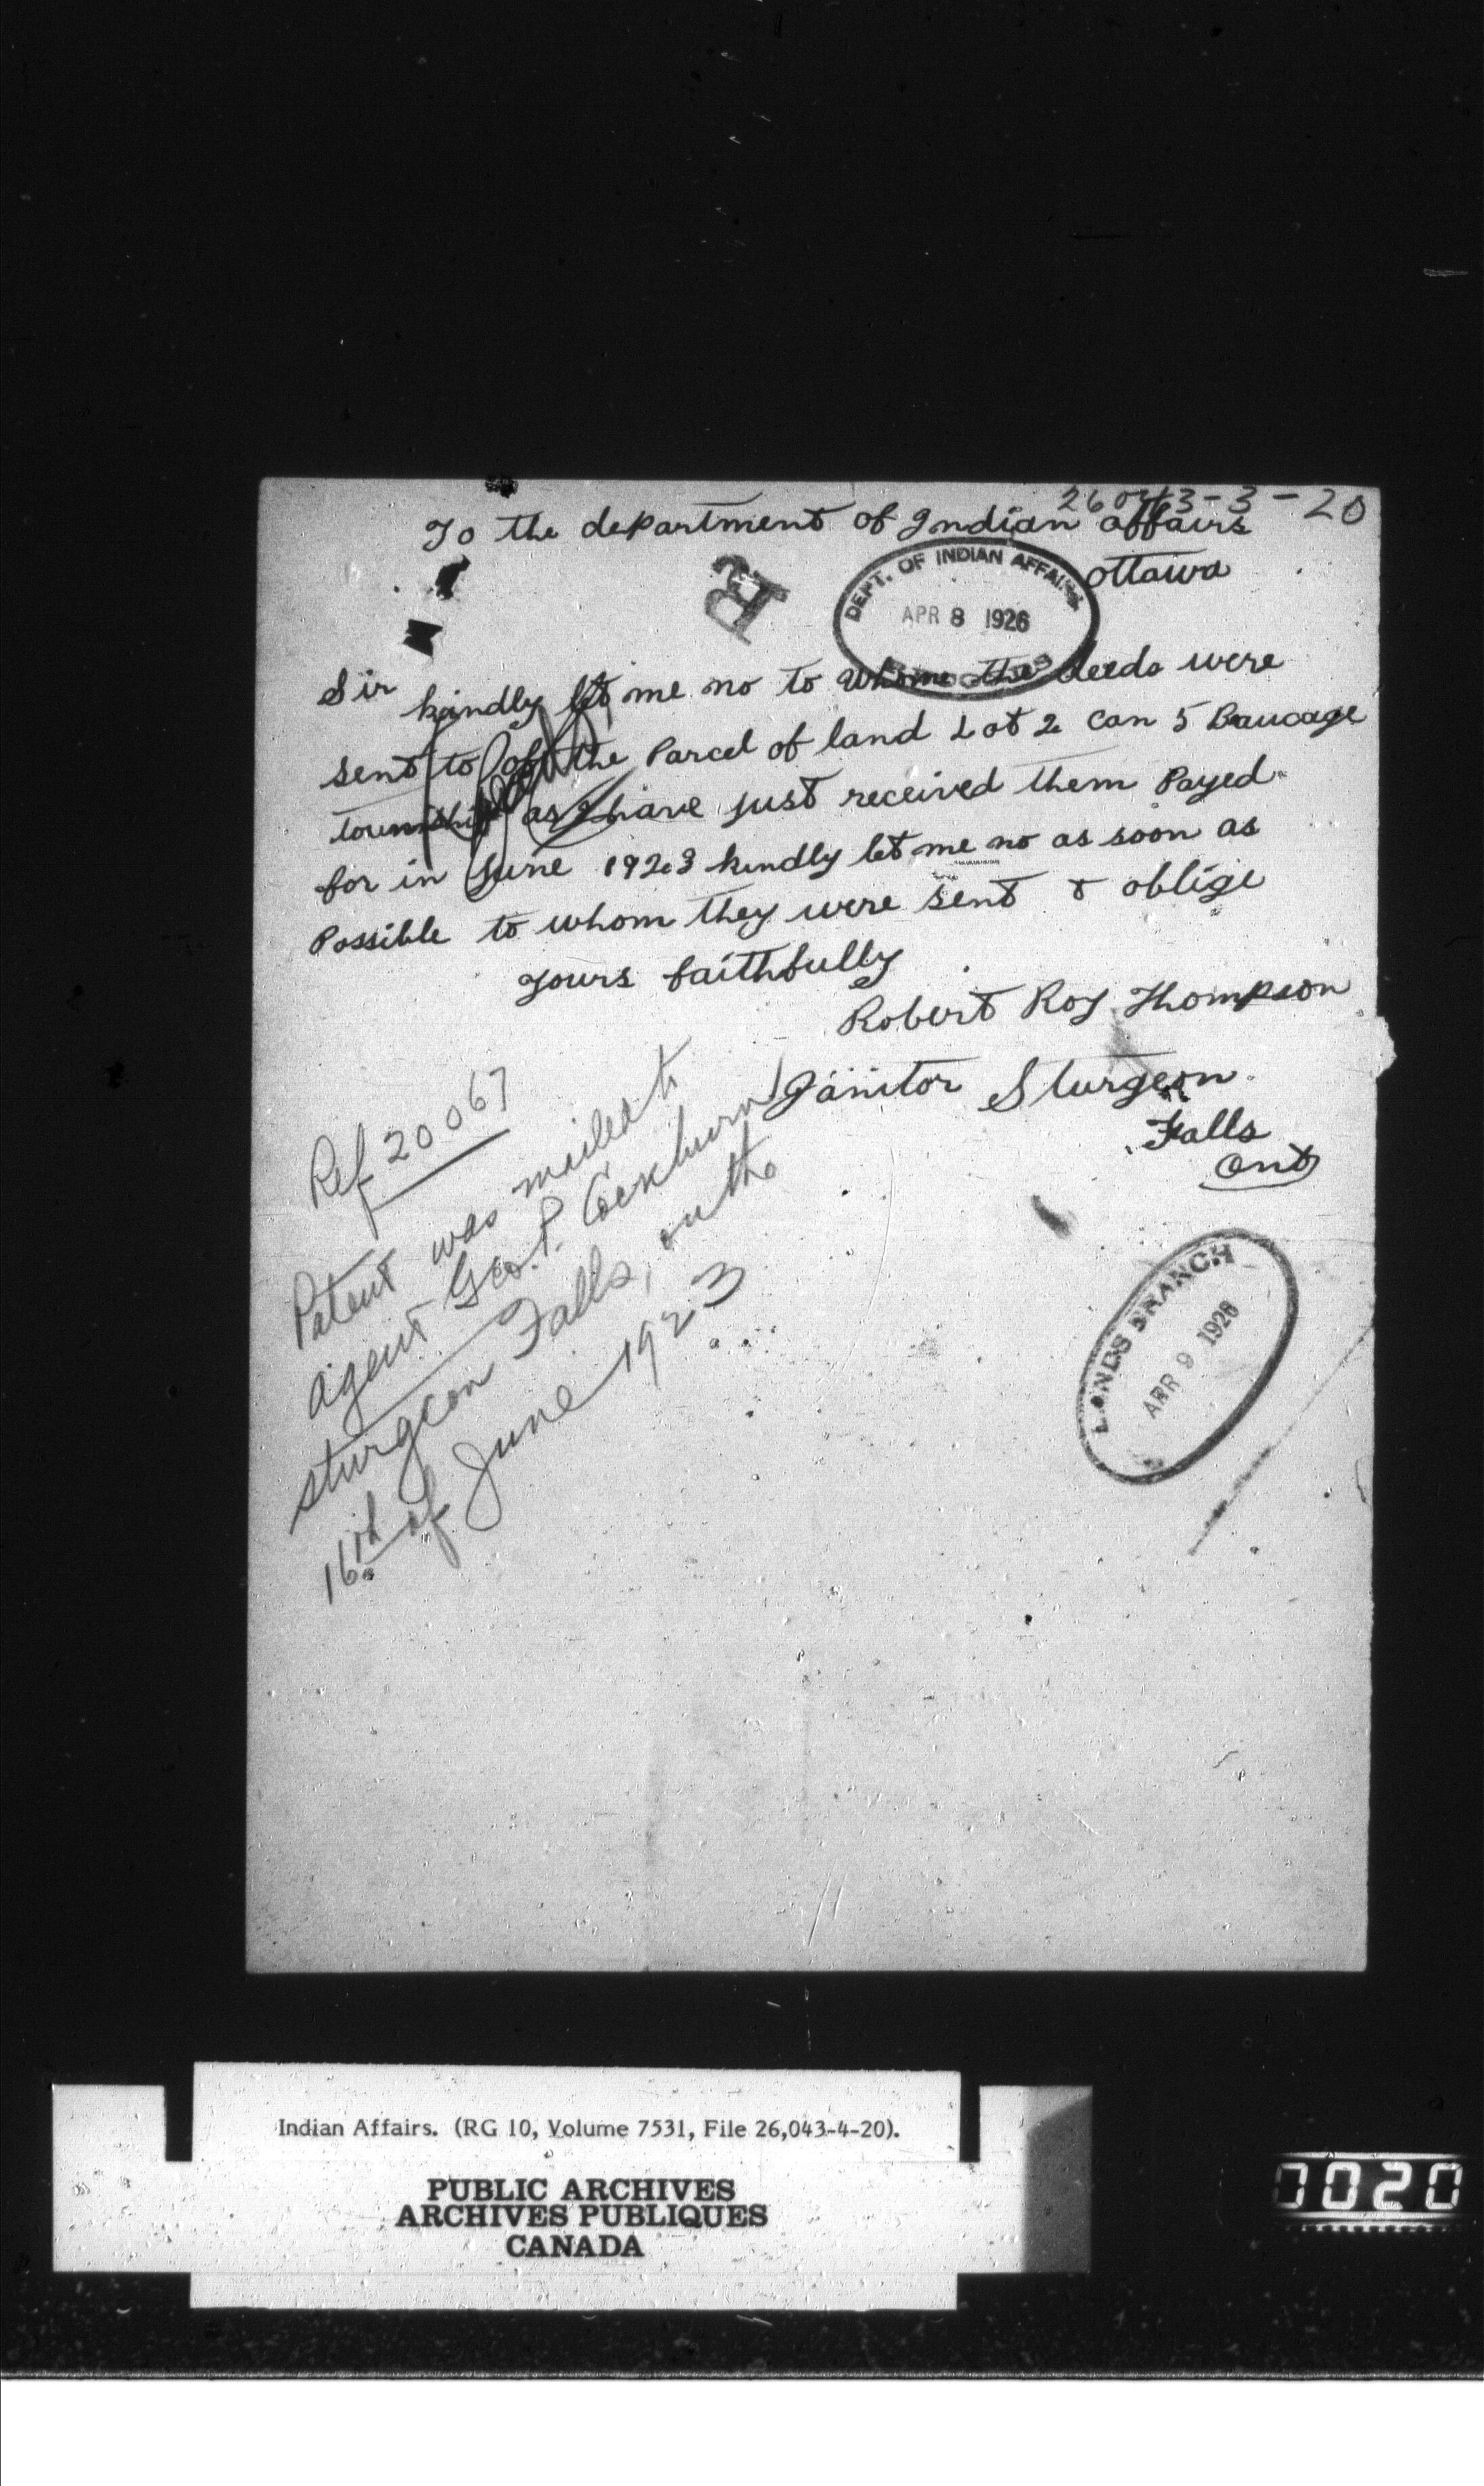 26043-3-20
To the department of Indian affairs
ottawa
DEPT. OF INDIAN AFFAIRS
APR 8 1926
Sir
kindly let me no to whome the deeds were
sent to of the Parcel of land Lot 2 Con 5 Baucage
township as I have just received them Payed
for in June 1923 kindly let me no as soon as
Possible to whom they were sent & oblige
yours faithfully
Robert Roy Thompson
Janitor Sturgeon
Falls
Ont
Ref 20067
Patent was mailed to
agent Geo. P. Cockburn
sturgeon Falls, on the
16th of June 1923
LANDS BRANCH
APR 9 1926
Indian Affairs. (RG 10, Volume 7531, File 26,043-4-20).
PUBLIC ARCHIVES
ARCHIVES PUBLIQUES
CANADA
0020